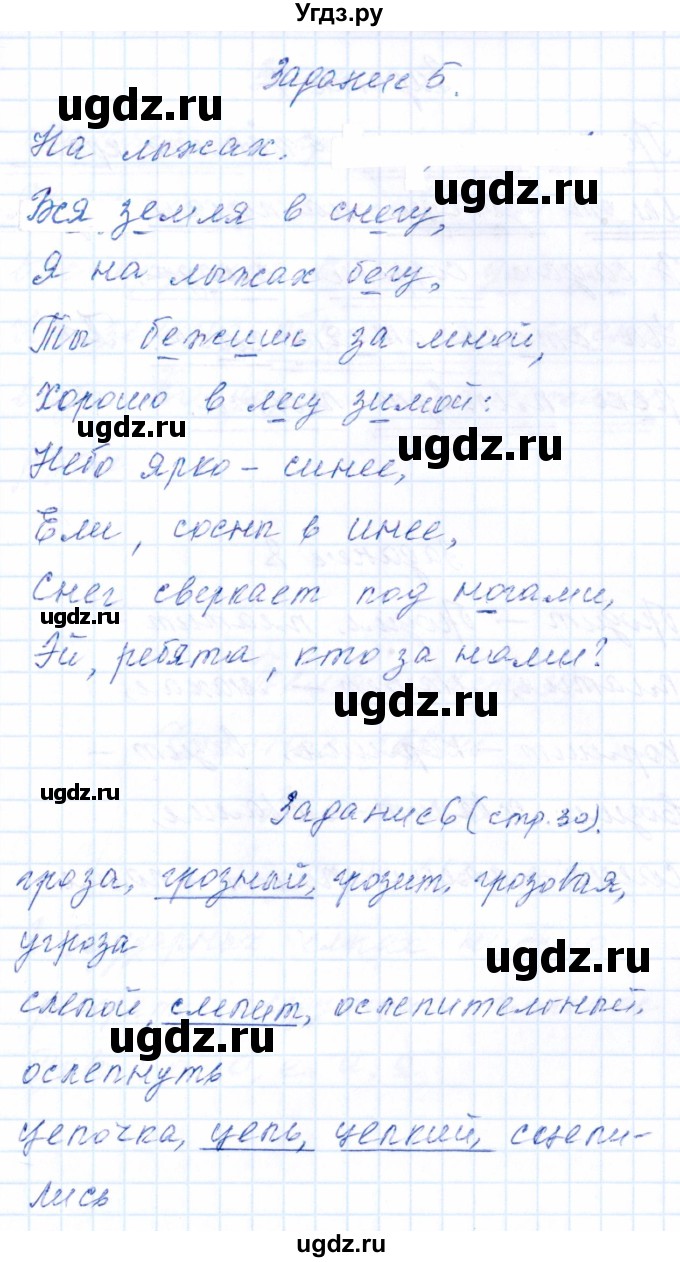 Угдз.ру
Задание 5.
ugdz.ru
На лыжах.
ugdz.ru
Вся земля в снегу,
Я на лыжах бегу,
Ты бежишь за мной,
Хорошо в лесу зимой:
ugdz.ru
ugdz.ru
Небо ярко - синее,
Ели, сосны в инее,
Снег сверкает под ногами,
ugdz.ru
Эй, ребята, кто за нами?
ugdz.ru
ugdz.ru
Задание 6 (стр. 30).
гроза, грозный, грозит, грозовая,
угроза
ugdz.ru
слепой, слепит, ослепительный,
ugdz.ru
ослепнуть
цепочка, цепь, цепкий, сцепи-
лись
ugdz.ru